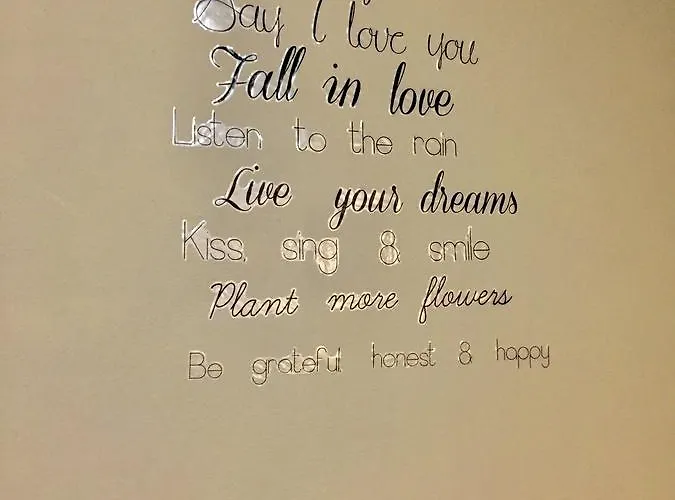 Say I love you
Fall in love
Listen to the rain
Live your dreams
Kiss, sing & smile
Plant more flowers
Be grateful honest & happy